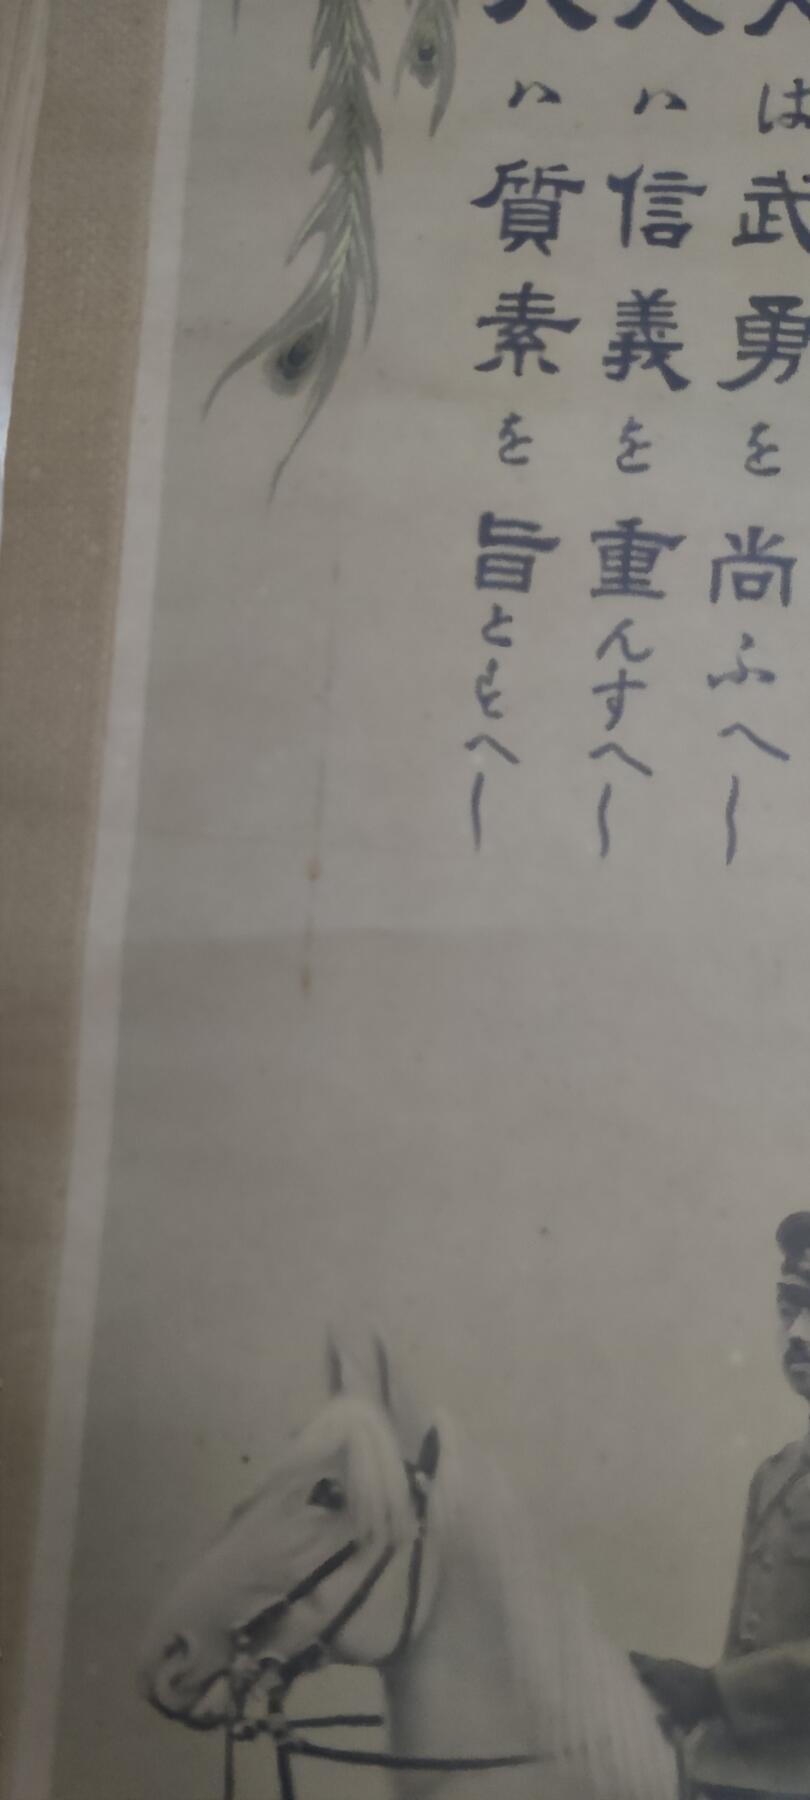 人は武勇を尚ふへし
人ハ信義を重んすへし
人ハ質素を旨とすへし